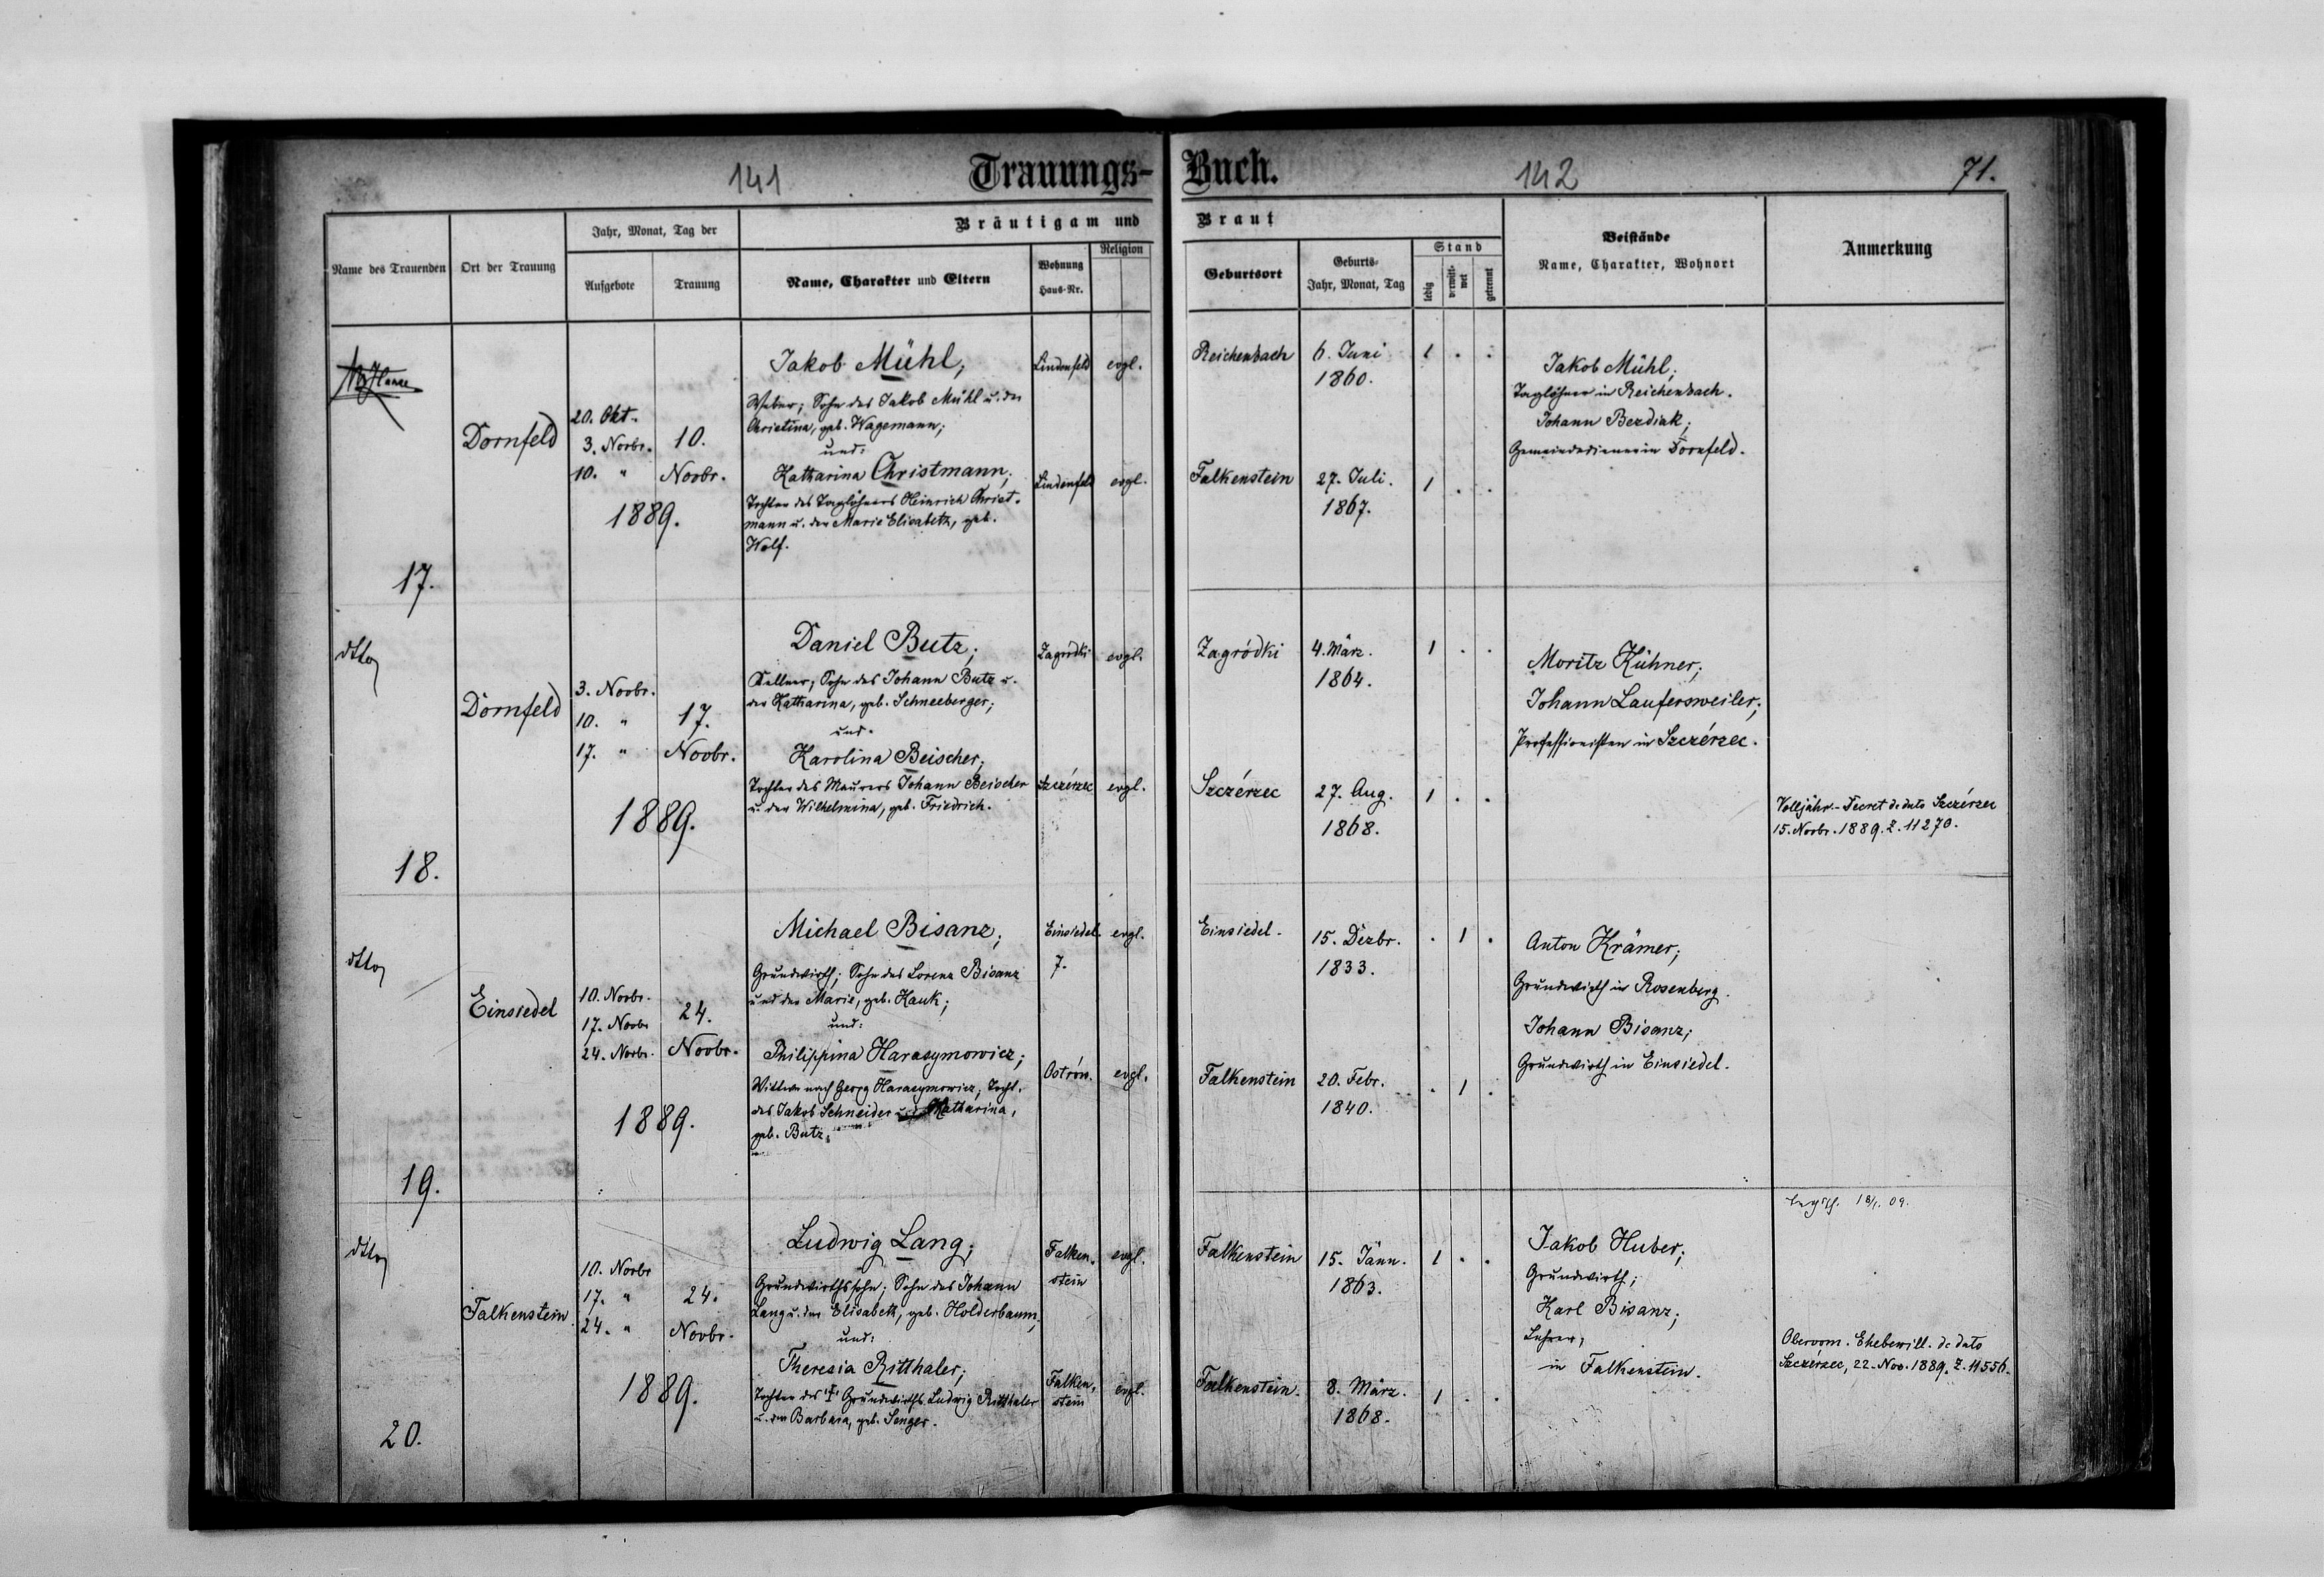 141
Trauungs-Buch.
142
71.
Bräutigam und Braut
Name des Trauenden
Ort der Trauung
Jahr, Monat, Tag der
Aufgebote
Trauung
Name, Charakter und Eltern
Wohnung
Haus-Nr.
Religion
Geburtsort
Geburts-
Jahr, Monat, Tag
Stand
ledig
verwitt-
wet
getrennt
Beistände
Name, Charakter, Wohnort
Anmerkung
17.
Dornfeld
20. Okt.
3. Novbr.
10. "
10.
Novbr.
1889.
Jakob Mühl;
Weber; Sohn des Jakob Mühl u. der
Christina, geb. Wagemann;
und:
Katharina Christmann;
Tochter des Taglöhners Heinrich Christ-
mann u. der Marie Elisabeth, geb.
Wolf.
Lindenfeld evgl.
Lindenfeld evgl.
Reichenbach
6. Juni
1860.
1 . .
Falkenstein
27. Juli.
1867.
1 . .
Jakob Mühl;
Taglöhner in Reichenbach.
Johann Bezdiak;
Gemeindediener in Dornfeld.
18.
dtto
Dornfeld
3. Novbr.
10. "
17. "
17.
Novbr.
1889.
Daniel Butz;
Kellner; Sohn des Johann Butz u.
der Katharina, geb. Schneeberger;
und.
Karolina Beischer;
Tochter des Maurers Johann Beischer
u. der Wilhelmina, geb. Friedrich.
Zagródki evgl.
Szczérzec evgl.
Zagródki
4. März.
1864.
1 . .
Szczérzec
27. Aug.
1868.
1 . .
Moritz Kühner;
Johann Laufersweiler;
Professionisten in Szczérzec.
Volljähr.-Decret de dato Szczérzec
15. Novbr. 1889. Z. 11270.
19.
dtto
Einsiedel
10. Novbr.
17. Novbr
24. Novbr.
24.
Novbr.
1889.
Michael Bisanz;
Grundwirth; Sohn des Lorenz Bisanz
und der Marie, geb. Hauk;
und:
Philippina Harasymowicz;
Wittwe nach Georg Harasymowicz, Tocht.
des Jakob Schneider und Katharina,
geb. Butz.
Einsiedel. evgl.
7.
Ostrów. evgl.
Einsiedel.
15. Dezbr.
1833.
. 1 .
Falkenstein
20. Febr.
1840.
. 1 .
Anton Krämer;
Grundwirth in Rosenberg.
Johann Bisanz;
Grundwirth in Einsiedel.
20.
dtto
Falkenstein.
10. Novbr
17. "
24. "
24.
Novbr.
1889.
Ludwig Lang;
Grundwirthssohn; Sohn des Johann
Lang u. der Elisabeth, geb. Holderbaum;
und:
Theresia Ritthaler;
Tochter des † Grundwirths Ludwig Ritthaler
u. der Barbara, geb. Senger.
Falken-
stein
evgl.
Falken-
stein
evgl.
Falkenstein
15. Jänn.
1863.
1 . .
Falkenstein.
8. März.
1868.
1 . .
Jakob Huber;
Grundwirth;
Karl Bisanz;
Lehrer;
in Falkenstein.
18/1. 09.
Obervorm. Ehebewill. de dato
Szczérzec, 22. Nov. 1889. Z. 11556.